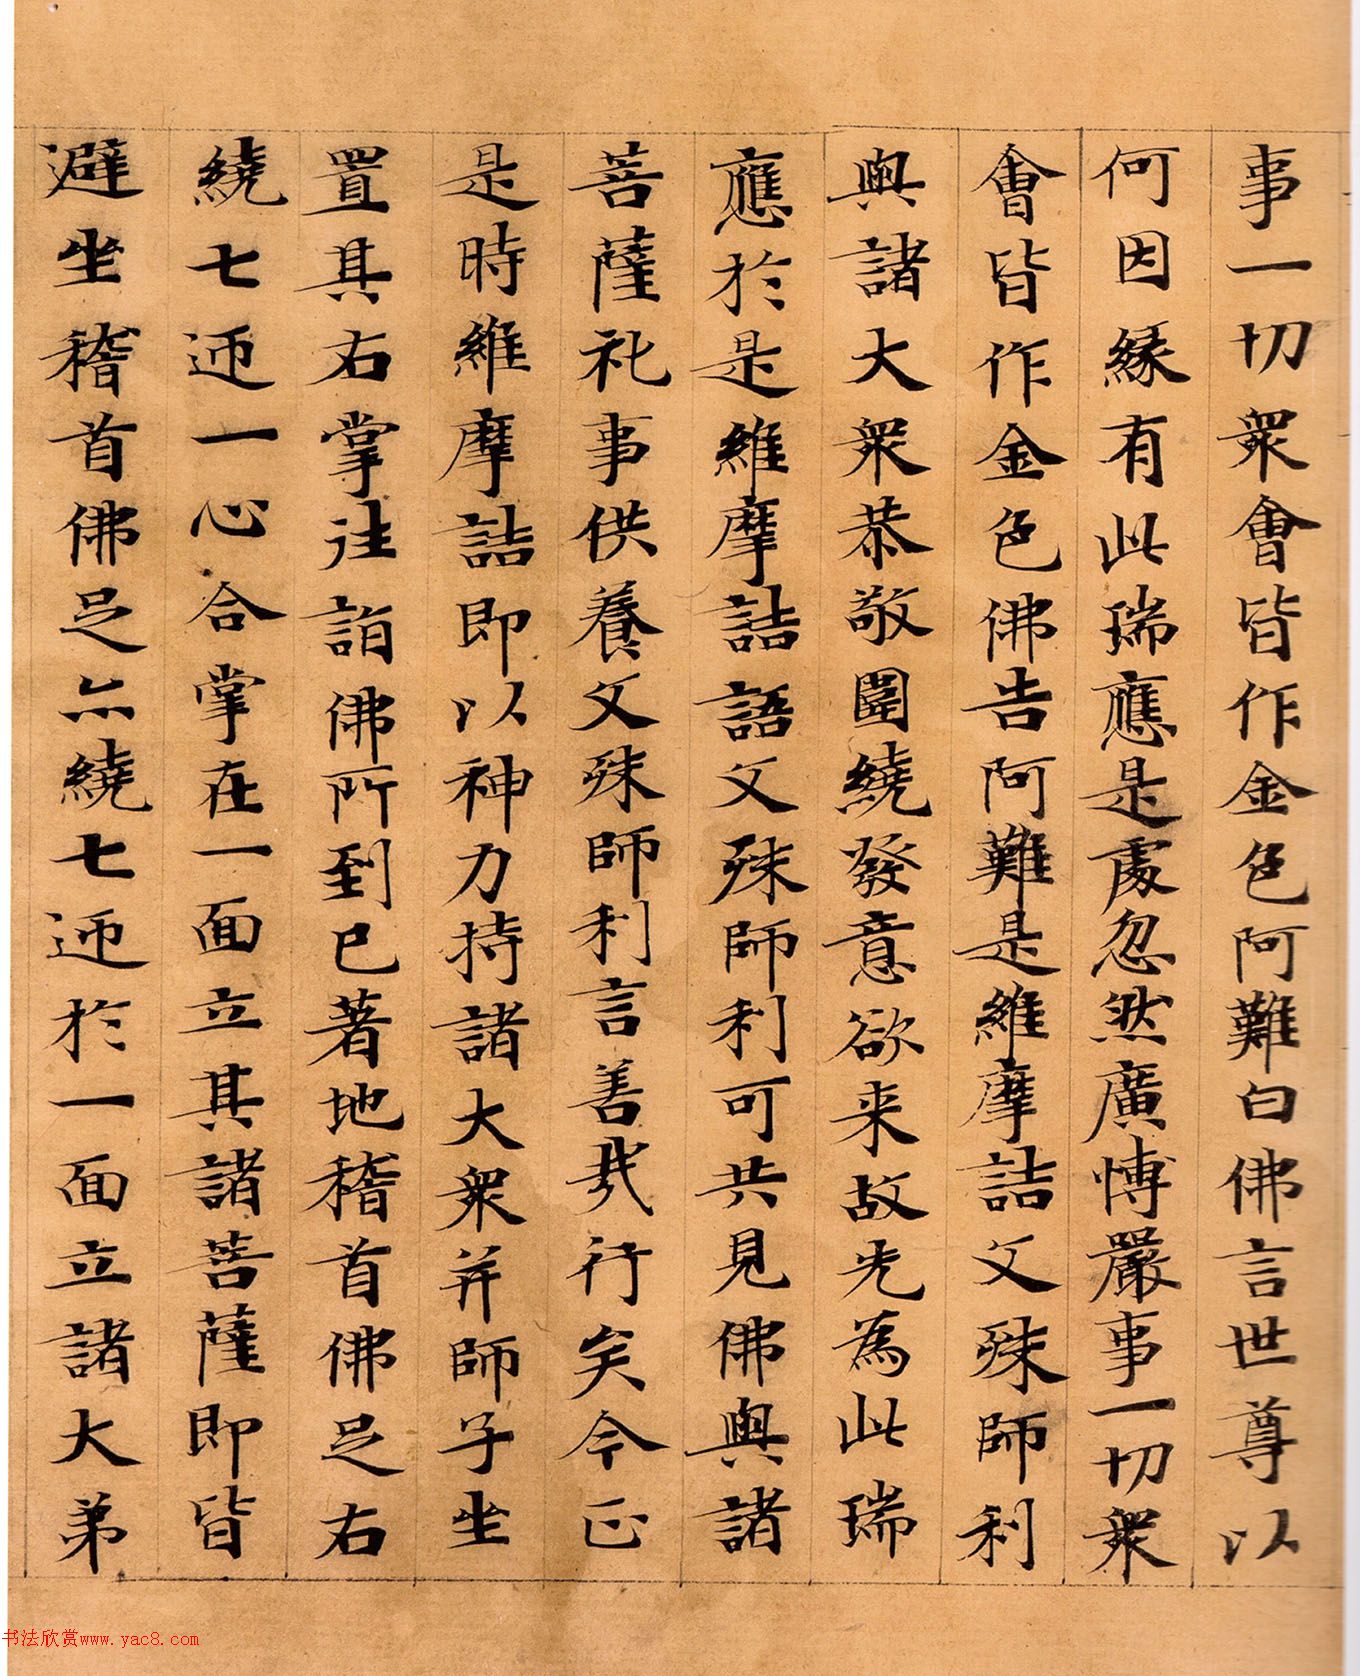 事一切衆會皆作金色阿難白佛言世尊以
何因緣有此瑞應是處忽然廣博嚴事一切衆
會皆作金色佛告阿難是維摩詰文殊師利
與諸大衆恭敬圍繞發意欲来故先為此瑞
應於是維摩詰語文殊師利可共見佛與諸
菩薩礼事供養文殊師利言善哉行矣今正
是時維摩詰即以神力持諸大衆并師子坐
置其右掌往詣佛所到已著地稽首佛足右
繞七迊一心合掌在一面立其諸菩薩即皆
避坐稽首佛足亦繞七迊於一面立諸大弟
书法欣赏www.yac8.com